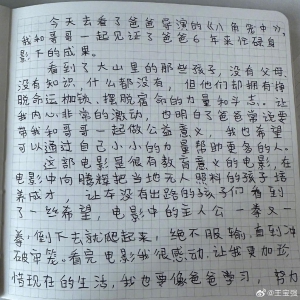 今天去看了爸爸导演的《八角笼中》，
我和哥哥一起见证了爸爸6年来任硕身
影下的成果。
看到了大山里的那些孩子，没有父母、
没有知识，什么都没有，但他们却拥有挣
脱命运枷锁、摆脱宿命的力量和手去。让
我内心非常的激动，也明白了爸爸常说要
带我和哥哥一起做公益意义，我也希望
可以通过自己小小的力量帮助更多的人。
这部电影是很有教育意义的电影，在
电影中向腾辉把当地无人照料的孩子培
养成才，让在没有出路的孩子们看到
了一丝希望，电影中的主人公 拳又一
拳倒下去就爬起来，绝不服输，直到冲
破牢笼。看完电影我很感动，让我更加珍
惜现在的生活，我也要像爸爸学习，努力
@王宝强